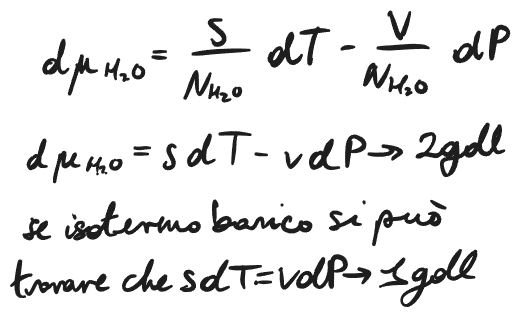 dμ_H₂O = S/N_H₂O dT - V/N_H₂O dP
dμ_H₂O = s dT - v dP → 2gdl
se isotermobarico si può
trovare che s dT = v dP → 1gdl